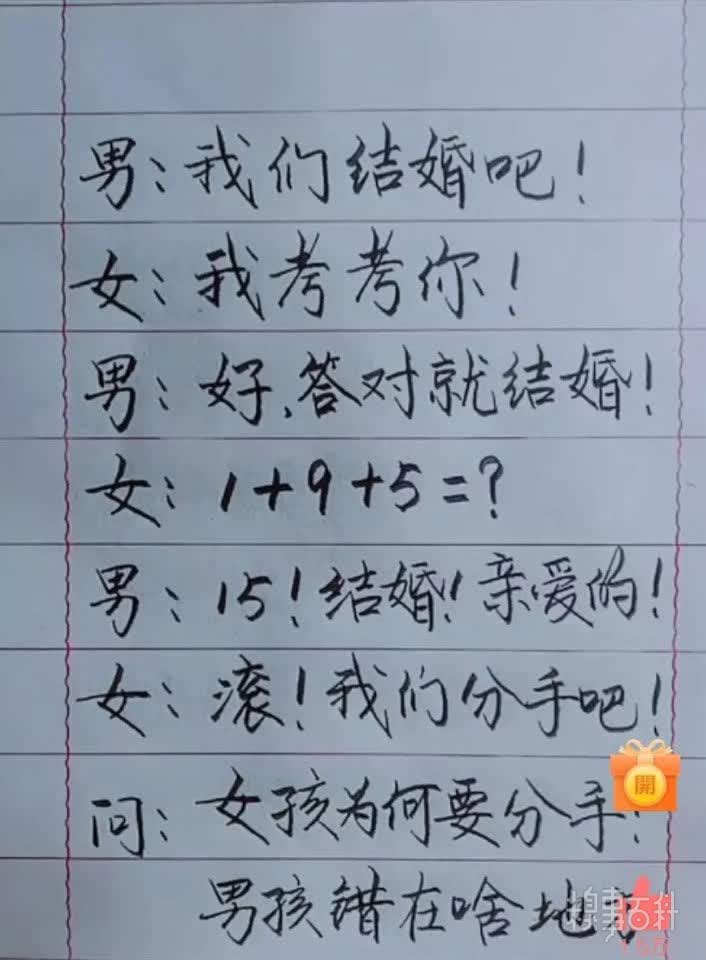 男：我们结婚吧！
女：我考考你！
男：好、答对就结婚！
女：1+9+5=？
男：15！结婚！亲爱的！
女：滚！我们分手吧！
開
问：女孩为何要分手？
男孩错在啥地
糗事百科